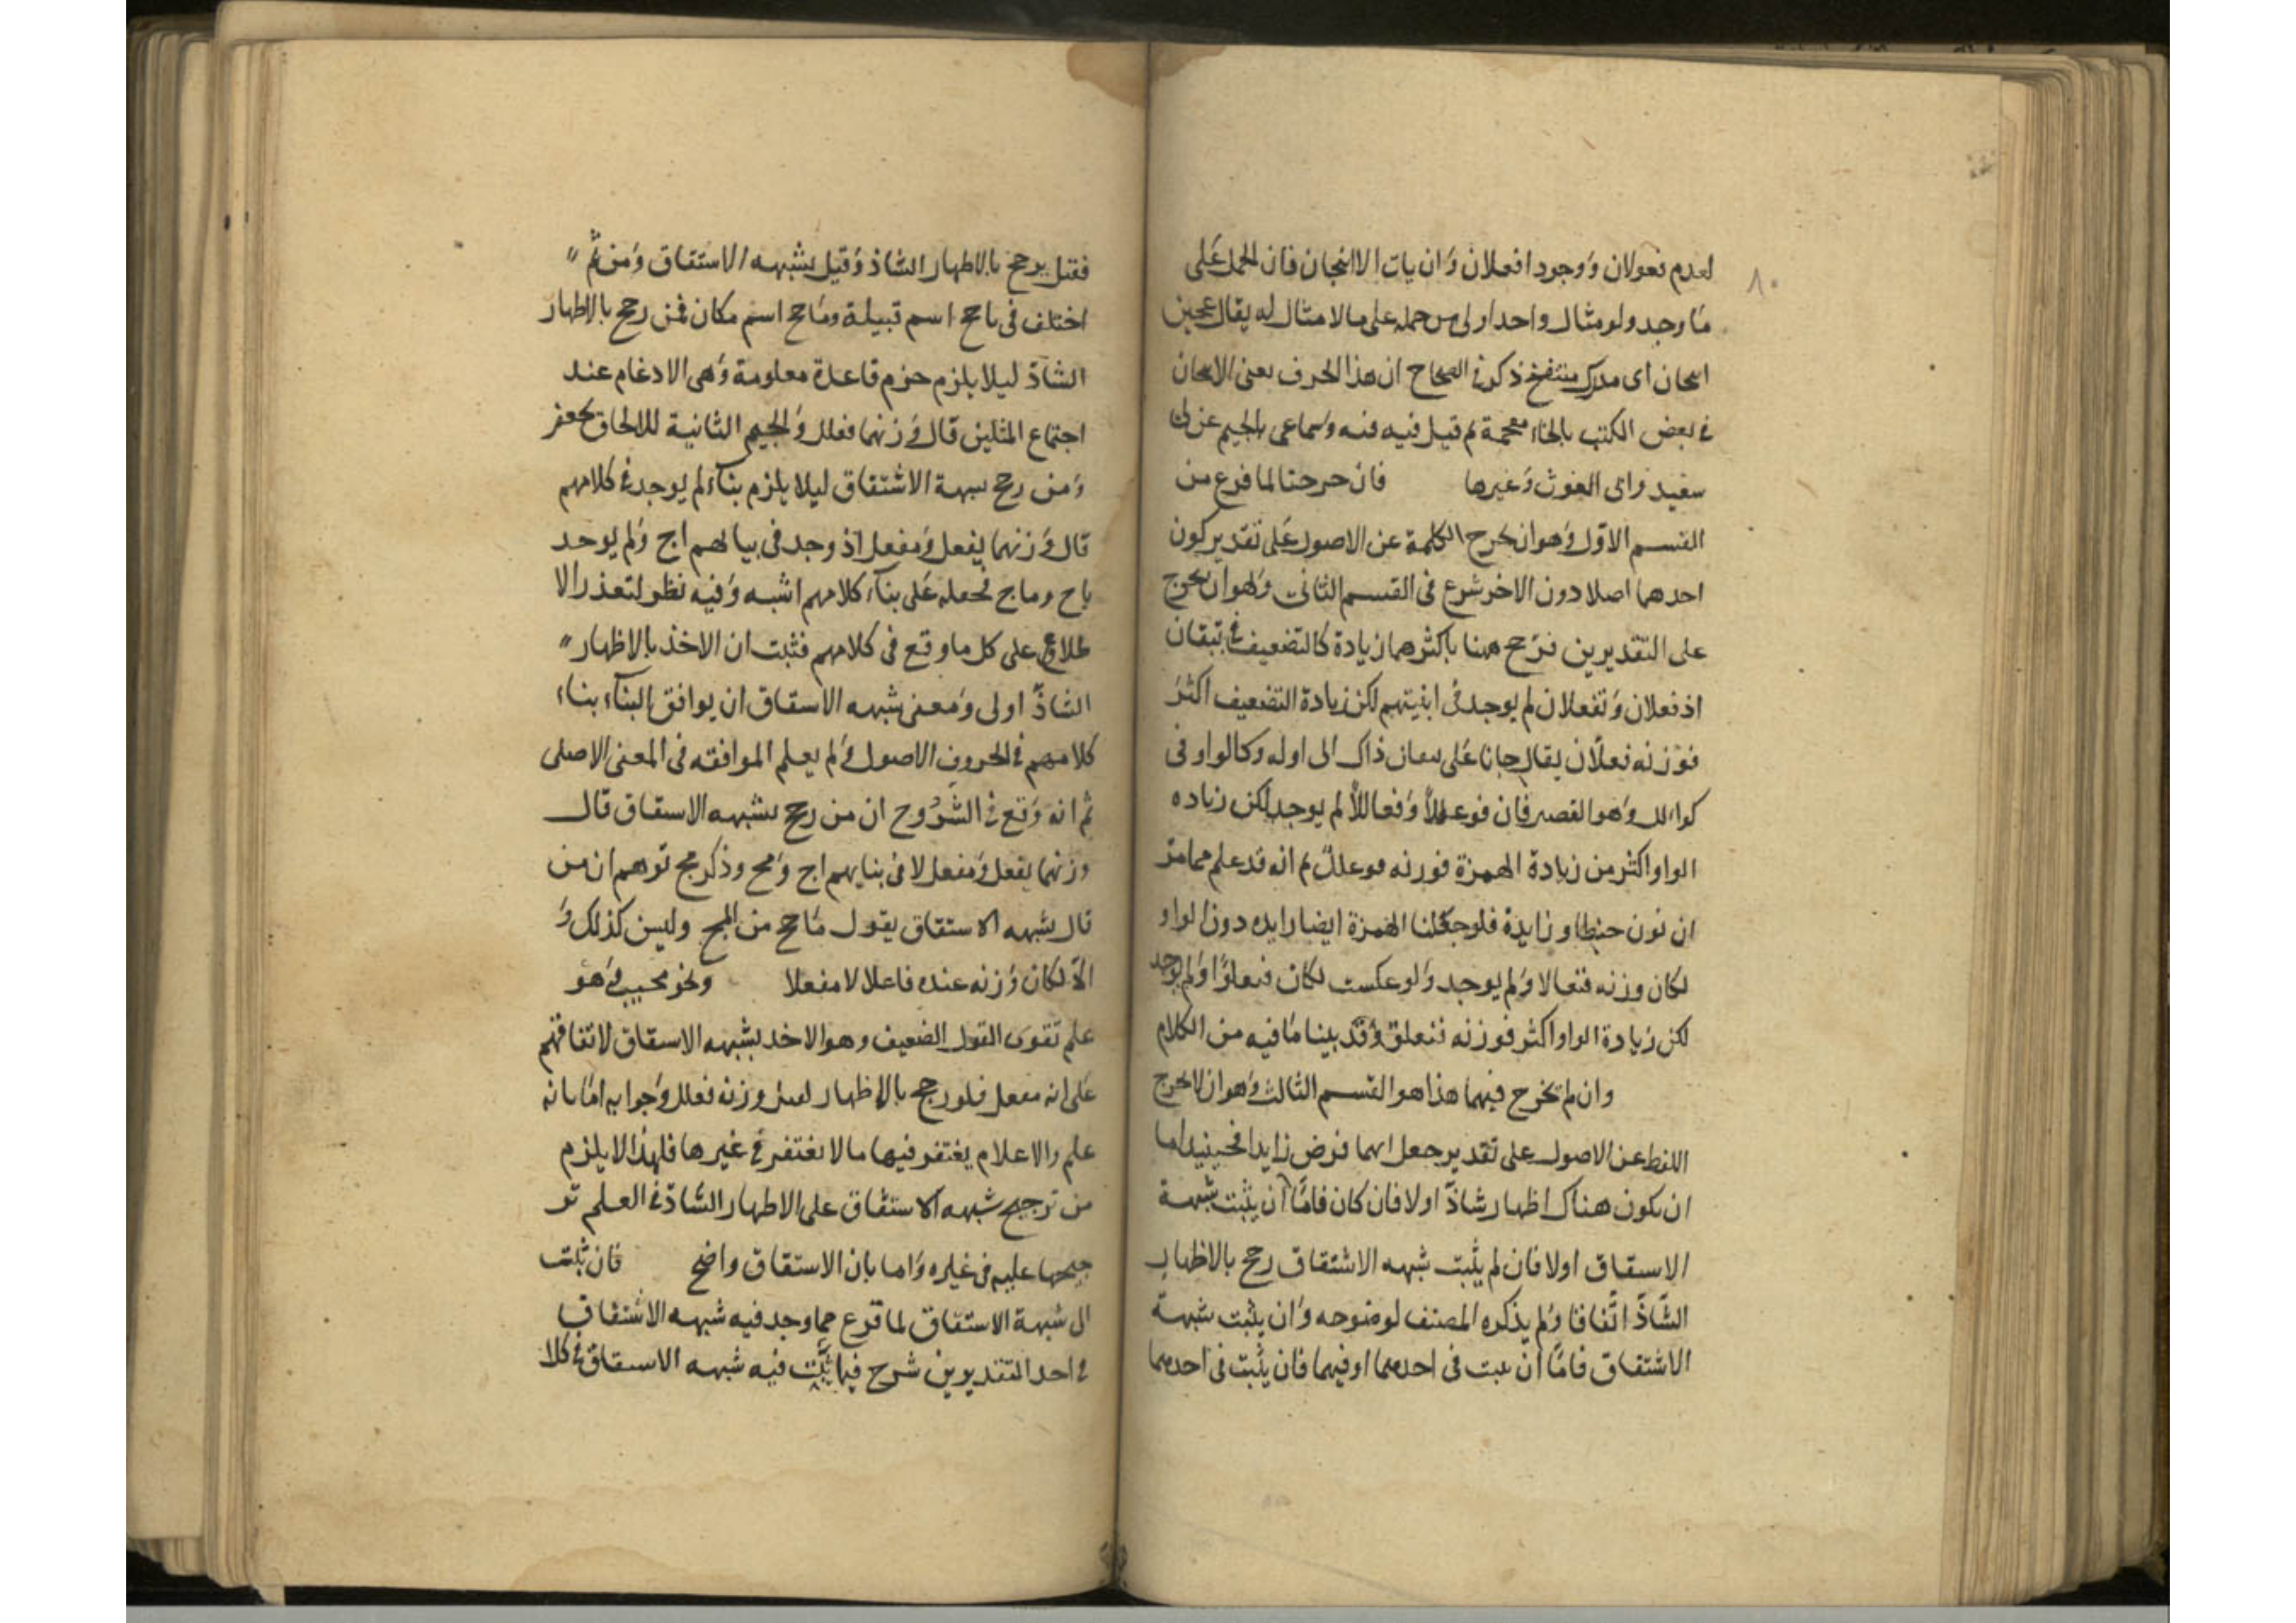 ٨٠
لعدم فعولان ووجود افعلان وان يات الا انبجان فان الحمل على
ما وجد ولو مثال واحد اولى من حمله على ما لا مثال له يقال عجين
انبجان اى مدرك منتفخ ذكر في الصحاح ان هذا الحرف يعنى الانبجان
في بعض الكتب بالخاء معجمة لم قيل فيه فنه وسماعى بالجيم عن ابى
سعيد وابى الغوث وغيرها فان خرجتا لما فرغ من
القسم الاول وهو ان يخرج الكلمة عن الاصول على تقدير كون
احدهما اصلا دون الاخر شرع فى القسم الثانى وهو ان يخرج
على التقديرين فرجح ههنا باكثرهما زيادة كالتضعيف في تيقان
اذ فعلان وتفعلان لم يوجد فى ابنيتهم لكن زيادة التضعيف اكثر
فوزنه فعلان يقال جانا على تيقان ذاك اى اوله وكالواو فى
كوالل وهو القصير فان فوعللا وفعاللا لم يوجد لكن زياده
الواو اكثر من زيادة الهمزة فوزنه فوعلل ثم انه قد علم مما مر
ان نون حنطاو زايدة فلو جعلنا الهمزة ايضا زايده دون الواو
لكان وزنه فنعالا ولم يوجد ولو عكست لكان فنعلوا ولم يوجد
لكن زيادة الواو اكثر فوزنه فنعلو وقد بينا ما فيه من الكلام
وان لم تخرج فيهما هذا هو القسم الثالث وهو ان لا يخرج
اللفظ عن الاصول على تقدير جعل ايهما فرض زايدا فحينيذ اما
ان يكون هناك اظهار شاذ اولا فان كان فاما ان يثبت شبهة
الاستقاق اولا فان لم يثبت شبهه الاشتقاق رجح بالاظهار
الشاذ اتفاقا ولم يذكره المصنف لوضوحه وان يثبت شبهة
الاشتقاق فاما ان يثبت فى احدهما او فيهما فان يثبت فى احدهما
فقيل يرجح بالاظهار الشاذ وقيل بشبهه الاشتقاق ومن ثم
اختلف فى ياجج اسم قبيلة وماجج اسم مكان فمن رجح بالاظهار
الشاذ ليلا يلزم خرم قاعدة معلومة وهى الادغام عند
اجتماع المثلين قال وزنهما فعلل والجيم الثانية للالحاق بجعفر
ومن رجح بشبهة الاشتقاق ليلا يلزم بناء لم يوجد في كلامهم
قال وزنهما يفعل ومفعل اذ وجد فى بنا لهم اج ولم يوجد
ياج وماج فحمله على بناء كلامهم اشبه وفيه نظر لتعذر الا
طلاع على كل ما وقع فى كلامهم فثبت ان الاخذ بالاظهار
الشاذ اولى ومعنى شبهه الاشتقاق ان يوافق البناء بناء
كلامهم في الحروف الاصول ولم يعلم الموافقه فى المعنى الاصلى
ثم انه وقع في الشروح ان من رجح بشبهه الاستقاق قال
وزنهما يفعل ومفعل لا فى بنايهم اج ومج وذكر مج توهم ان من
قال بشبهه الاستقاق يقول ماجج من المج وليس كذلك و
الا لكان وزنه عنده فاعلا لا مفعلا ونحو محبب وهو
علم تقوى القول الضعيف وهو الاخذ بشبهه الاستقاق لاتفاقهم
على انه مفعل فلو رجح بالاظهار لقيل وزنه فعلل وجوابه اما بانه
علم والاعلام يغتفر فيها ما لا يغتفر في غيرها فلهذا لا يلزم
من ترجيح شبهه الاستقاق على الاظهار الشاذ في العلم تر
جيحها عليه فى غيره واما بان الاستقاق واضح فان ثبتت
اى شبهة الاستقاق لما فرغ مما وجد فيه شبهه الاشتقاق
في احد التقديرين شرح فيما يثبت فيه شبهه الاستقاق في كلا